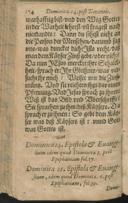 174 Dominica 23. post Trinitatis.
warhafftig bist vnd den Weg Gottes
in der Warheit lehrest vn fragest nach
niemandts: Dann du sihest nicht an
die Person der Menschen darumb sag
vns was duncket dich: Ists recht das
man dem Käyser Zinß gebe oder nicht
Da nun JEsus mercket ihre Schalckheit
sprach er: Ihr Heuchler was versucht
ihr mich? Weiset mir die Zinßmüntz.
Vnd sie reichten ihm dar einen
Pfenning. Vnd JEsus sprach zu ihnen:
Weß ist das Bild vnd die Vberschrifft?
Sie sprachen zu ihm: deß Käysers. Da
sprach er zu ihnen: So gebt dem Käyser
was deß Käysers ist: vnnd Gott
was Gottes ist.
Dominica 24. Epistola & Euangelium
idem quod Dominica 5. post
Epiphaniam fol.
Dominica 25. Epistola & Euangelium,
idem quod Dominica
post Epiphaniam, fol. 57.